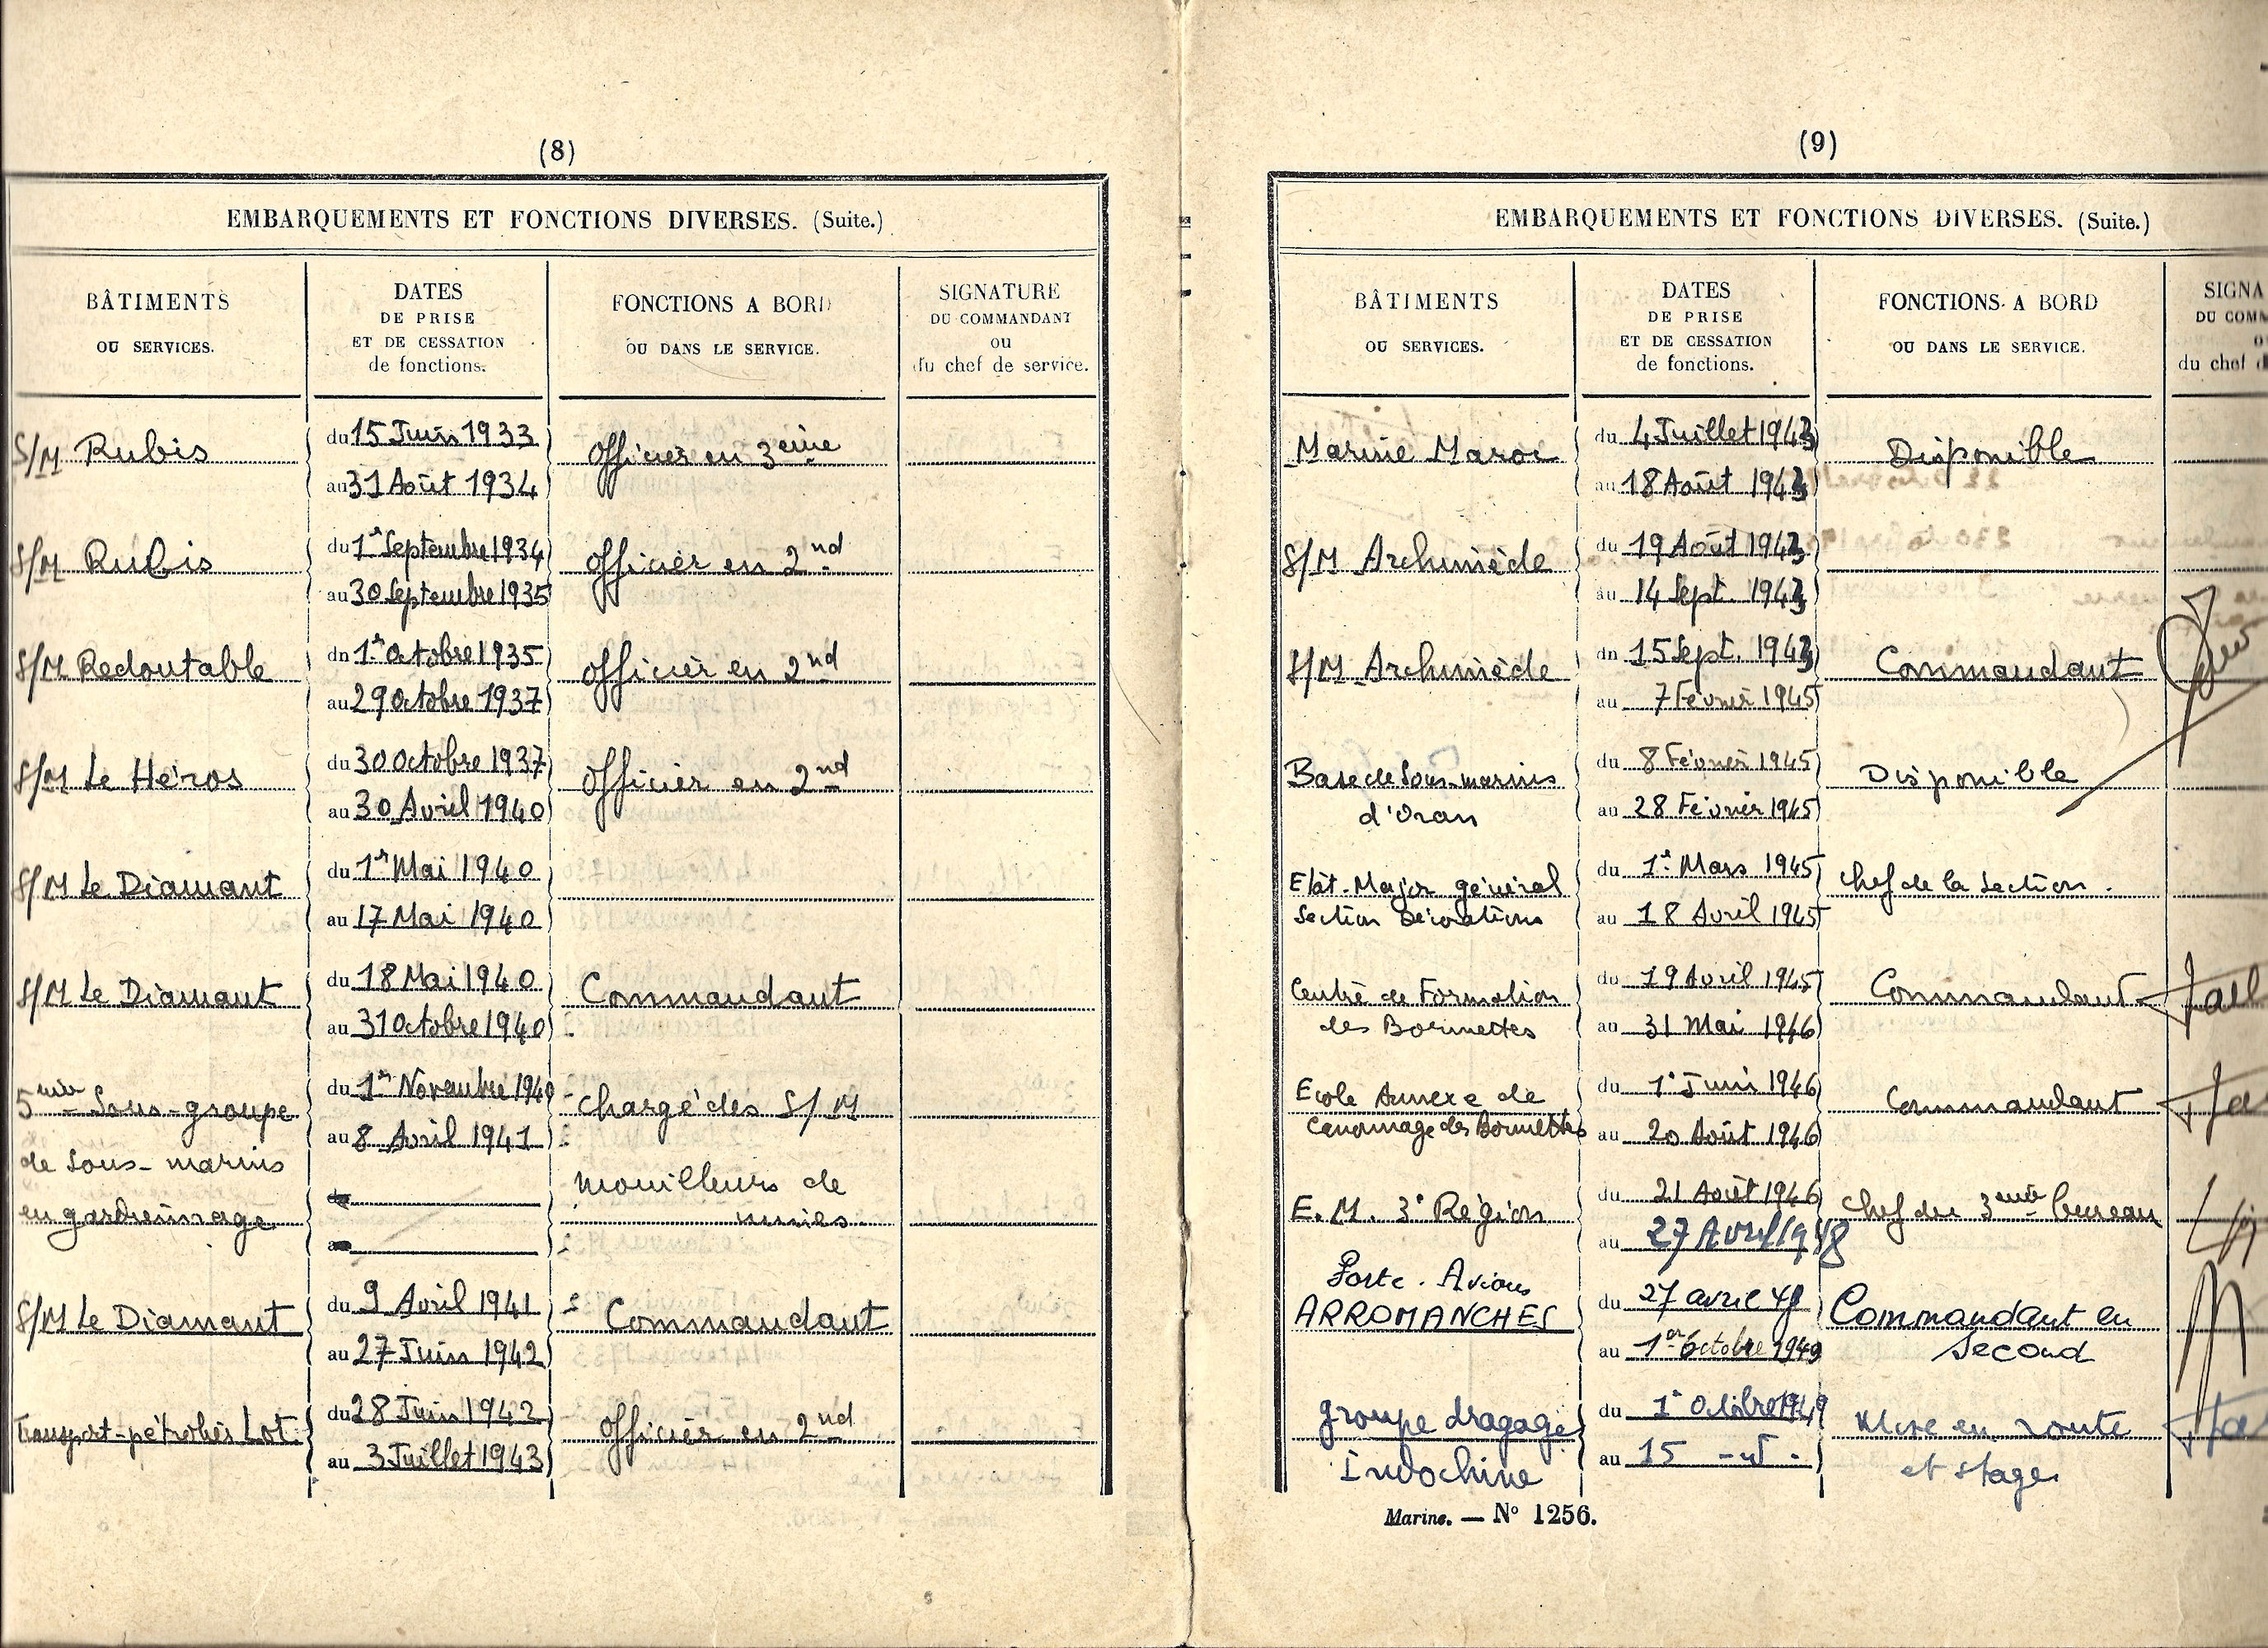 (8)
EMBARQUEMENTS ET FONCTIONS DIVERSES. (Suite.)
BÂTIMENTS
OU SERVICES.
DATES
DE PRISE
ET DE CESSATION
de fonctions.
FONCTIONS A BORD
OU DANS LE SERVICE.
SIGNATURE
DU COMMANDANT
ou
du chef de service.
S/M Rubis
du 15 Juin 1933
au 31 Août 1934
Officier en 3eme
S/M Rubis
du 1er Septembre 1934
au 30 Septembre 1935
Officier en 2nd
S/M Redoutable
du 1er Octobre 1935
au 29 Octobre 1937
Officier en 2nd
S/M Le Héros
du 30 Octobre 1937
au 30 Avril 1940
Officier en 2nd
S/M Le Diamant
du 1er Mai 1940
au 17 Mai 1940
S/M Le Diamant
du 18 Mai 1940
au 31 Octobre 1940
Commandant
5eme Sous-groupe
de Sous-marins
en gardiennage
du 1er Novembre 1940
au 8 Avril 1941
Chargé des S/M
mouilleurs de
mines.
S/M Le Diamant
du 9 Avril 1941
au 27 Juin 1942
Commandant
Transport-pétrolier Lot
du 28 Juin 1942
au 3 Juillet 1943
Officier en 2nd
(9)
EMBARQUEMENTS ET FONCTIONS DIVERSES. (Suite.)
BÂTIMENTS
OU SERVICES.
DATES
DE PRISE
ET DE CESSATION
de fonctions.
FONCTIONS A BORD
OU DANS LE SERVICE.
SIGNA
DU COMM
du chef d
Marine Maroc
du 4 Juillet 1943
au 18 Août 1943
Disponible
S/M Archimède
du 19 Août 1943
au 14 Sept. 1943
S/M Archimède
du 15 Sept. 1943
au 7 Février 1945
Commandant
Base de Sous-marins
d'Oran
du 8 Février 1945
au 28 Février 1945
Disponible
Etat-Major général
Section Décorations
du 1er Mars 1945
au 18 Avril 1945
Chef de la Section.
Centre de Formation
des Bormettes
du 19 Avril 1945
au 31 Mai 1946
Commandant
Ecole Annexe de
Canonnage des Bormettes
du 1er Juin 1946
au 20 Août 1946
Commandant
E.M. 3e Région
du 21 Août 1946
au 27 Avril 1948
Chef du 3eme bureau
Porte-Avions
ARROMANCHES
du 27 avril 48
au 1er Octobre 1949
Commandant en
Second
Groupe dragage
Indochine
du 1er Octobre 1949
au 15 -d°-
Mise en route
et stage
Marine. — No 1256.